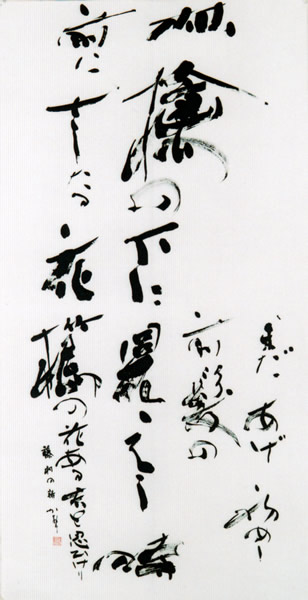 まだあげ初めし
前髪の
林檎の下に見えし時
前にさしたる花櫛の花ある君と思ひけり
藤村の詩